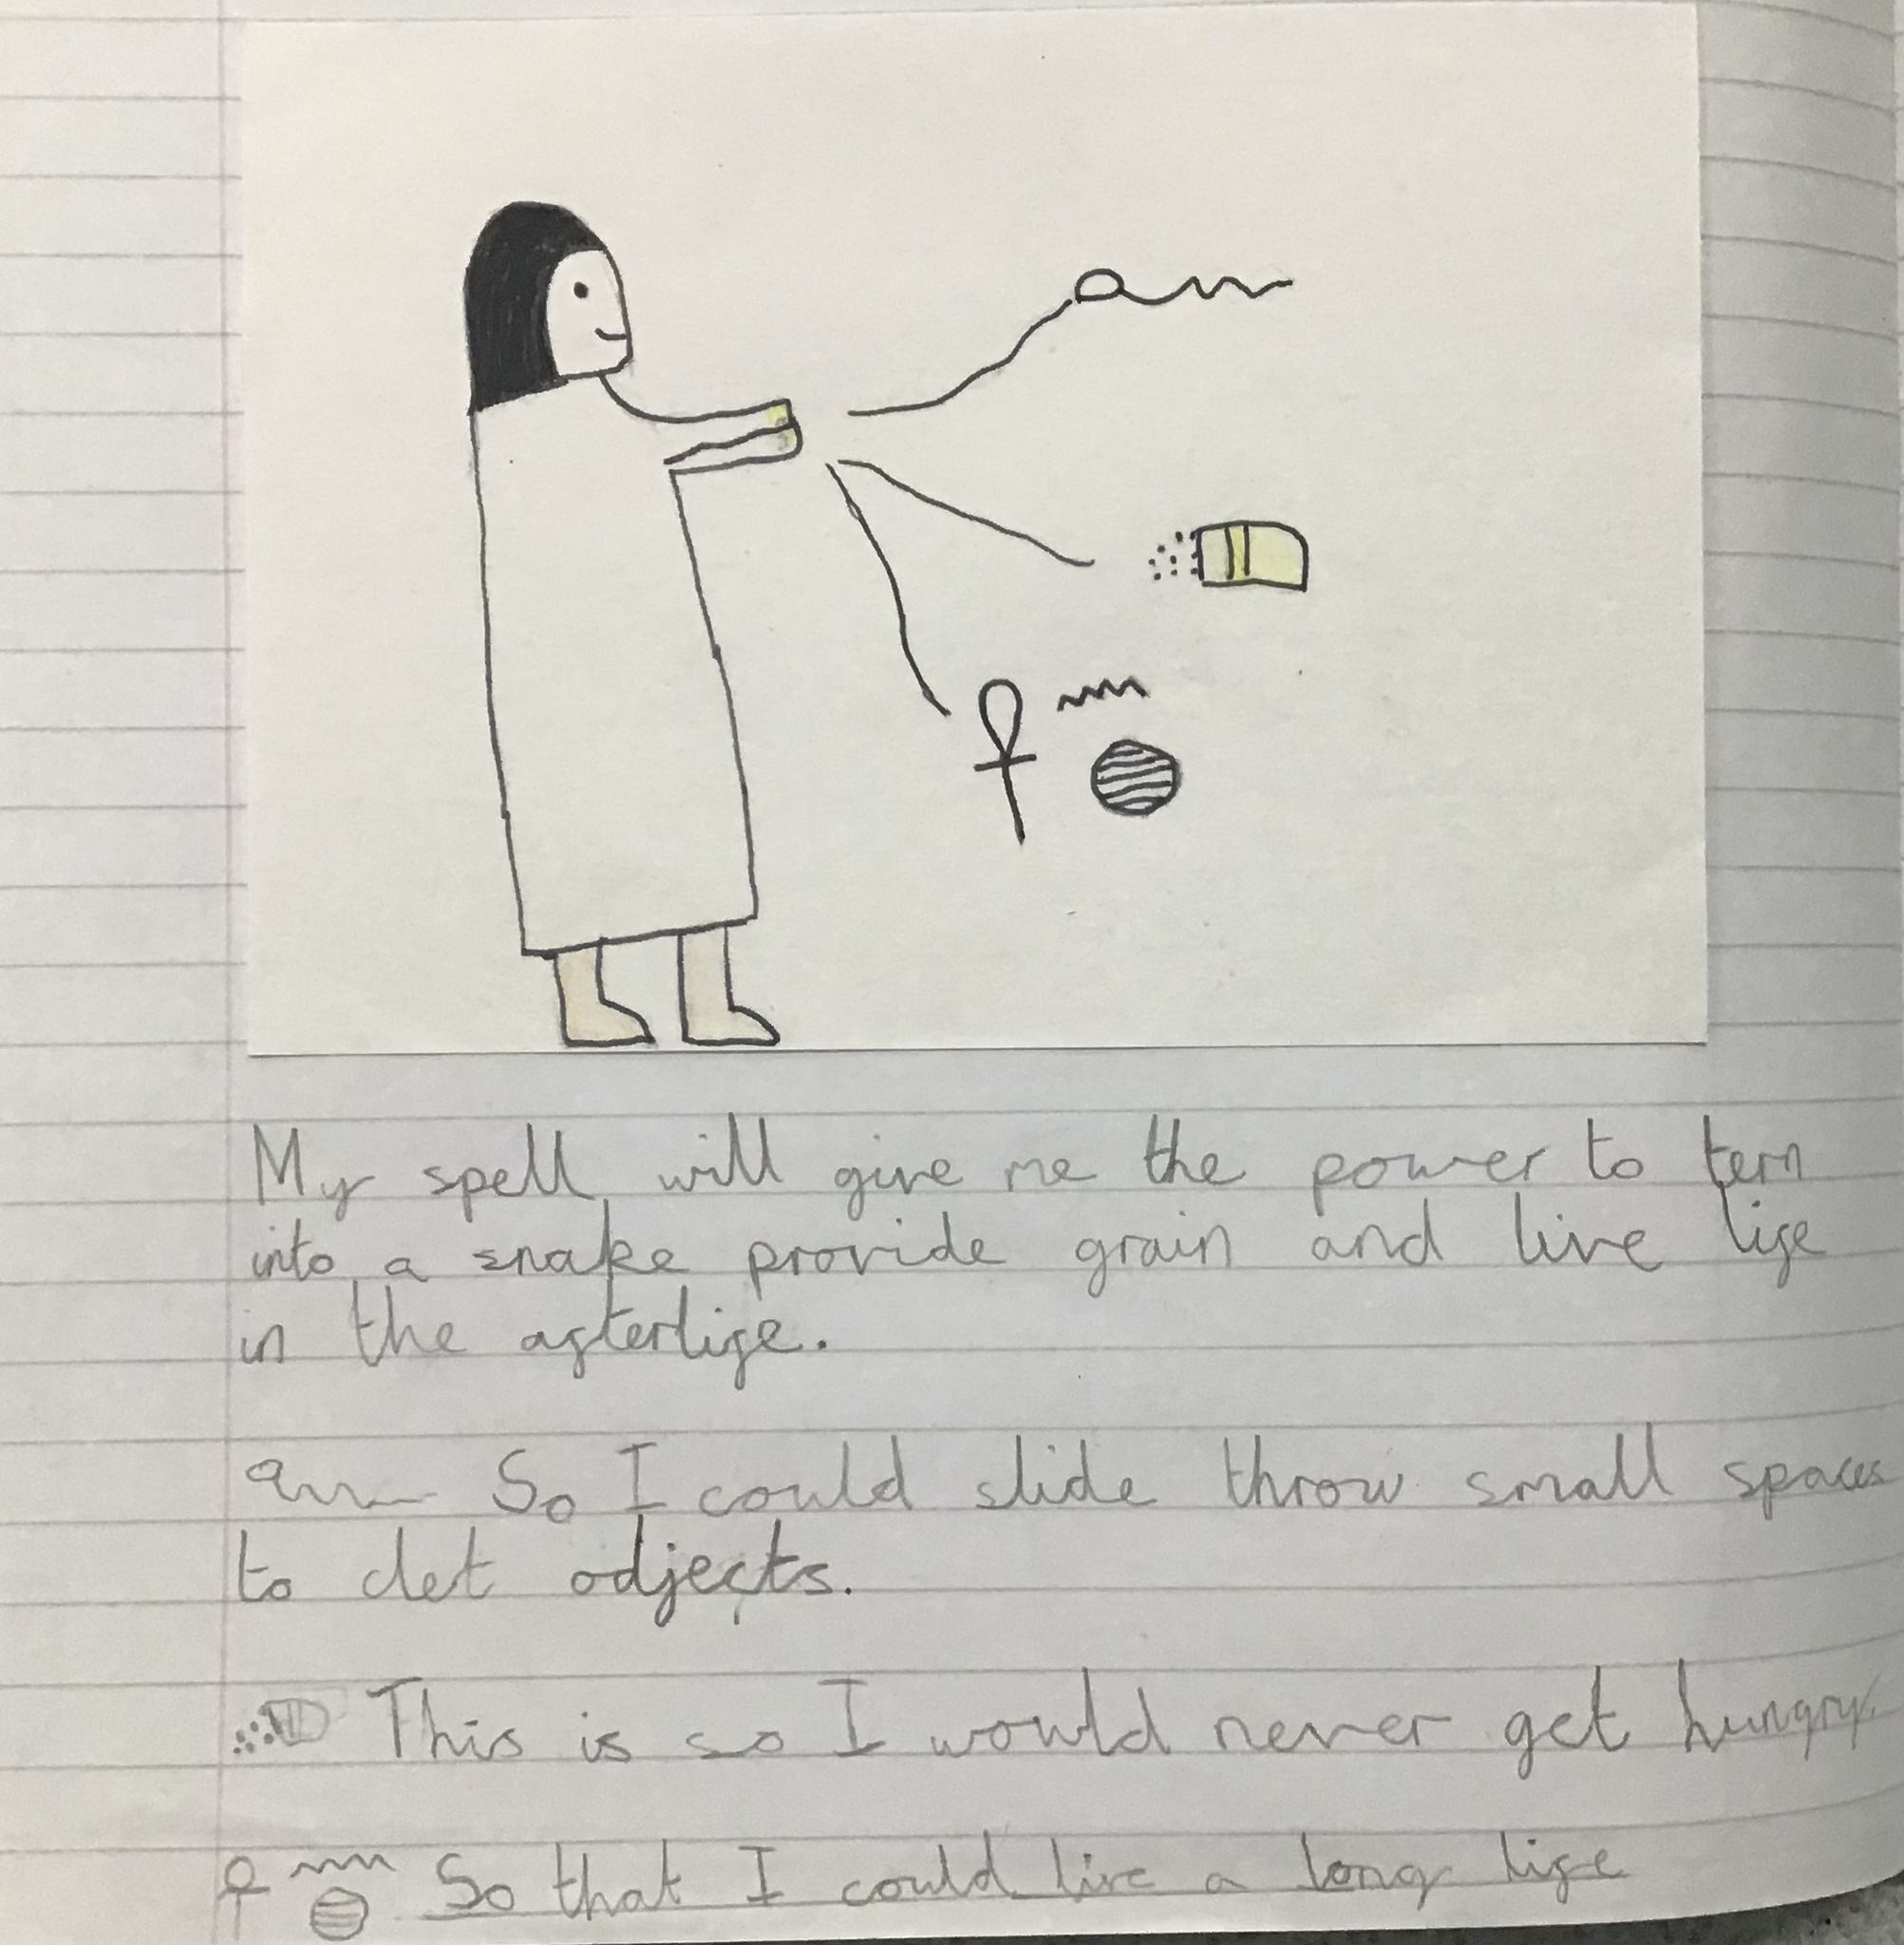 My spell will give me the power to tern
into a snake provide grain and live life
in the afterlife.
So I could slide throw small spaces
to det odjects.
This is so I would never get hungry.
So that I could live a long life